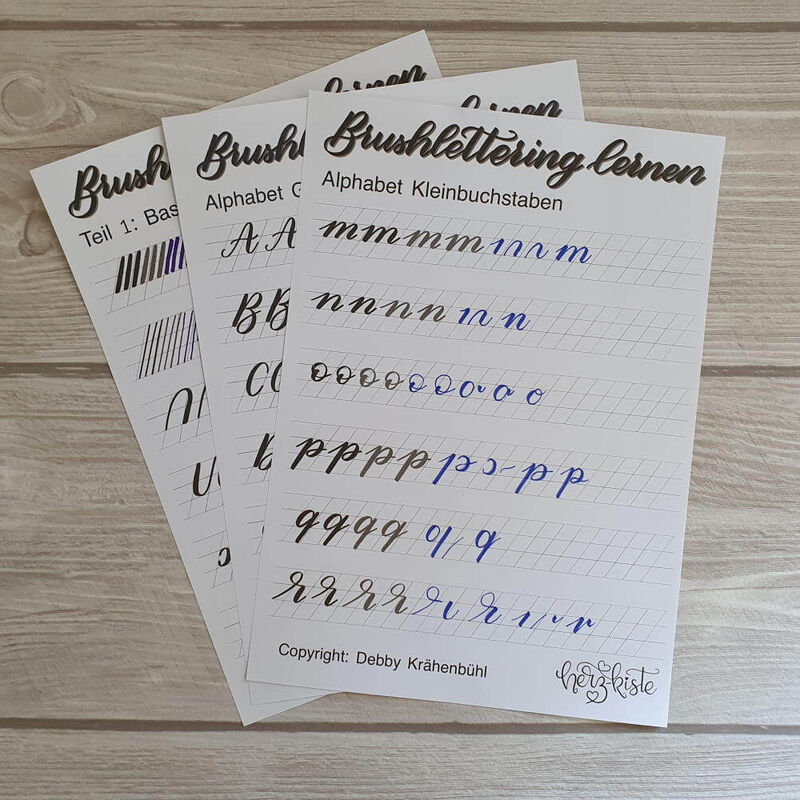 Brush
lernen
Teil 1: Bas
Brushl
lernen
Alphabet G
A A
B B
C C
Brushlettering lernen
Alphabet Kleinbuchstaben
m m m m m
n n n n n
o o o o o o o o o
p p p p p p p
q q q q q q
r r r r r r r
Copyright: Debby Krähenbühl
herz-kiste